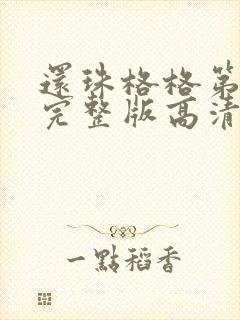 還珠格格第
完整版高清
一點稻香